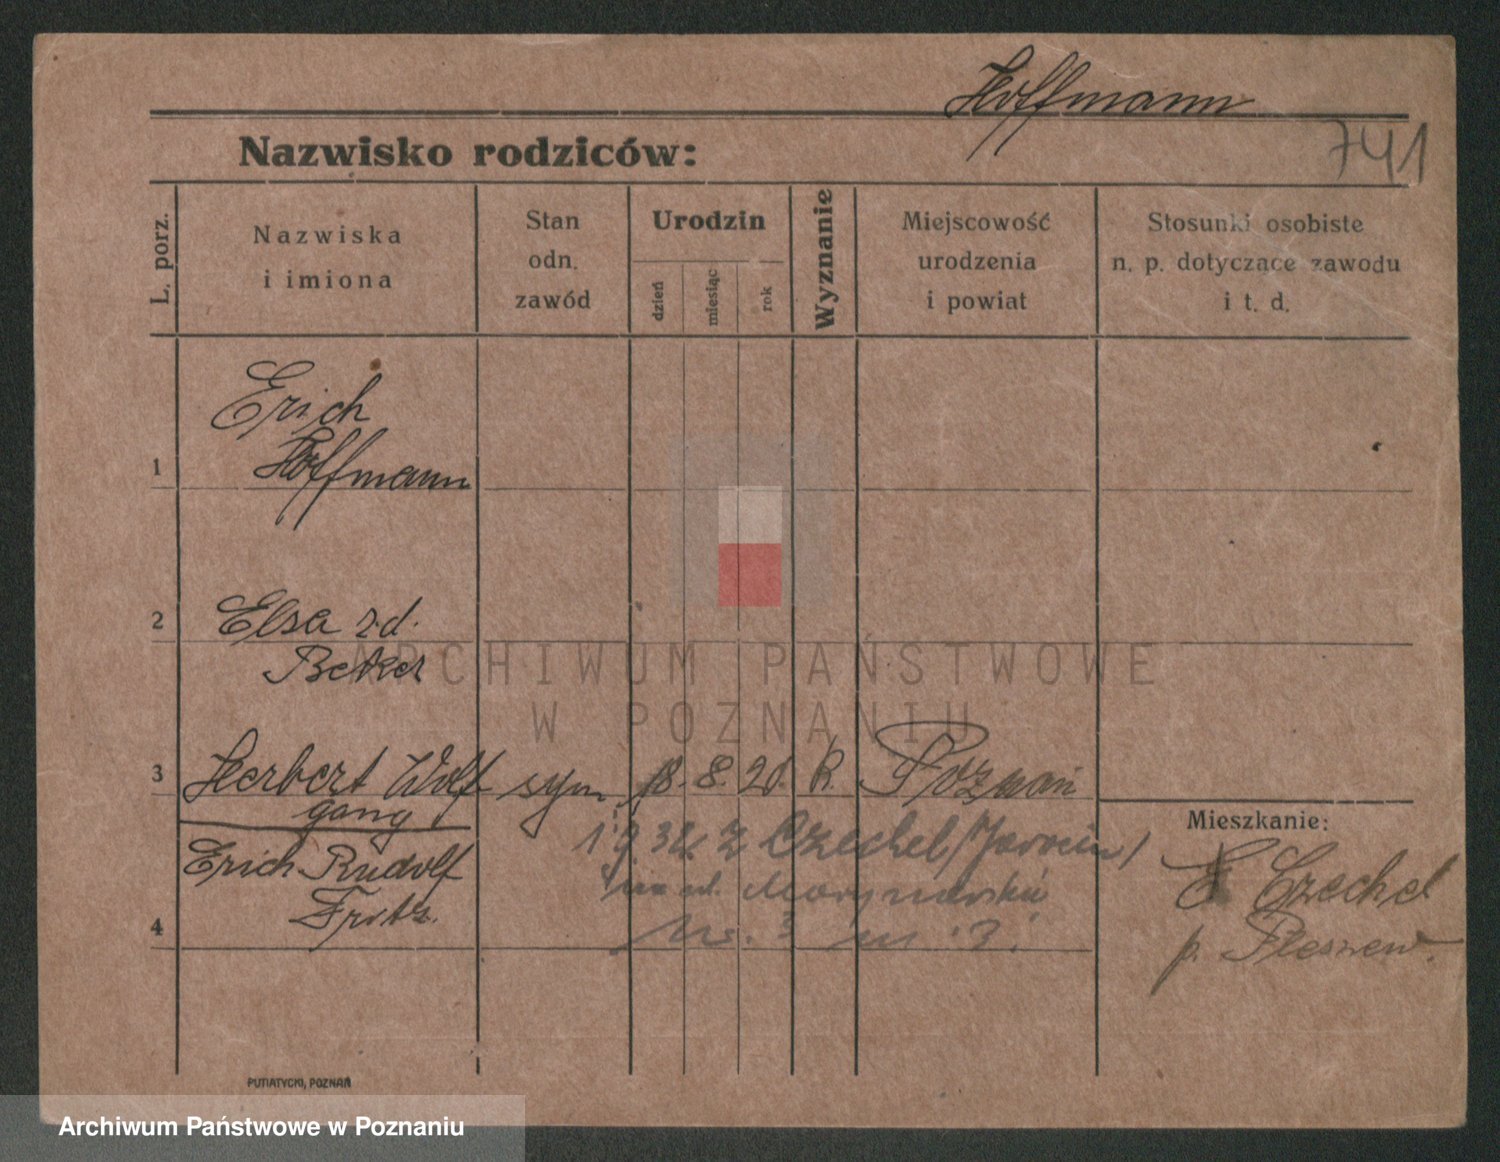 Hoffmann
741
Nazwisko rodziców:
L. porz.
Nazwiska
i imiona
Stan
odn.
zawód
Urodzin
dzień
miesiąc
rok
Wyznanie
Miejscowość
urodzenia
i powiat
Stosunki osobiste
n. p. dotyczące zawodu
i t. d.
Erich
1 Hoffmann
2 Elsa z.d.
Beker
ARCHIWUM PAŃSTWOWE
W POZNANIU
3 Herbert Wolf syn. 18. 8. 20. R. Poznań
gang
Mieszkanie:
Erich Rudolf
4 Fritz.
32 z Czechel (Jarocin)
ul.
3 m. 3.
Czechel
p. Pleszew.
PUTIATYCKI, POZNAŃ
Archiwum Państwowe w Poznaniu